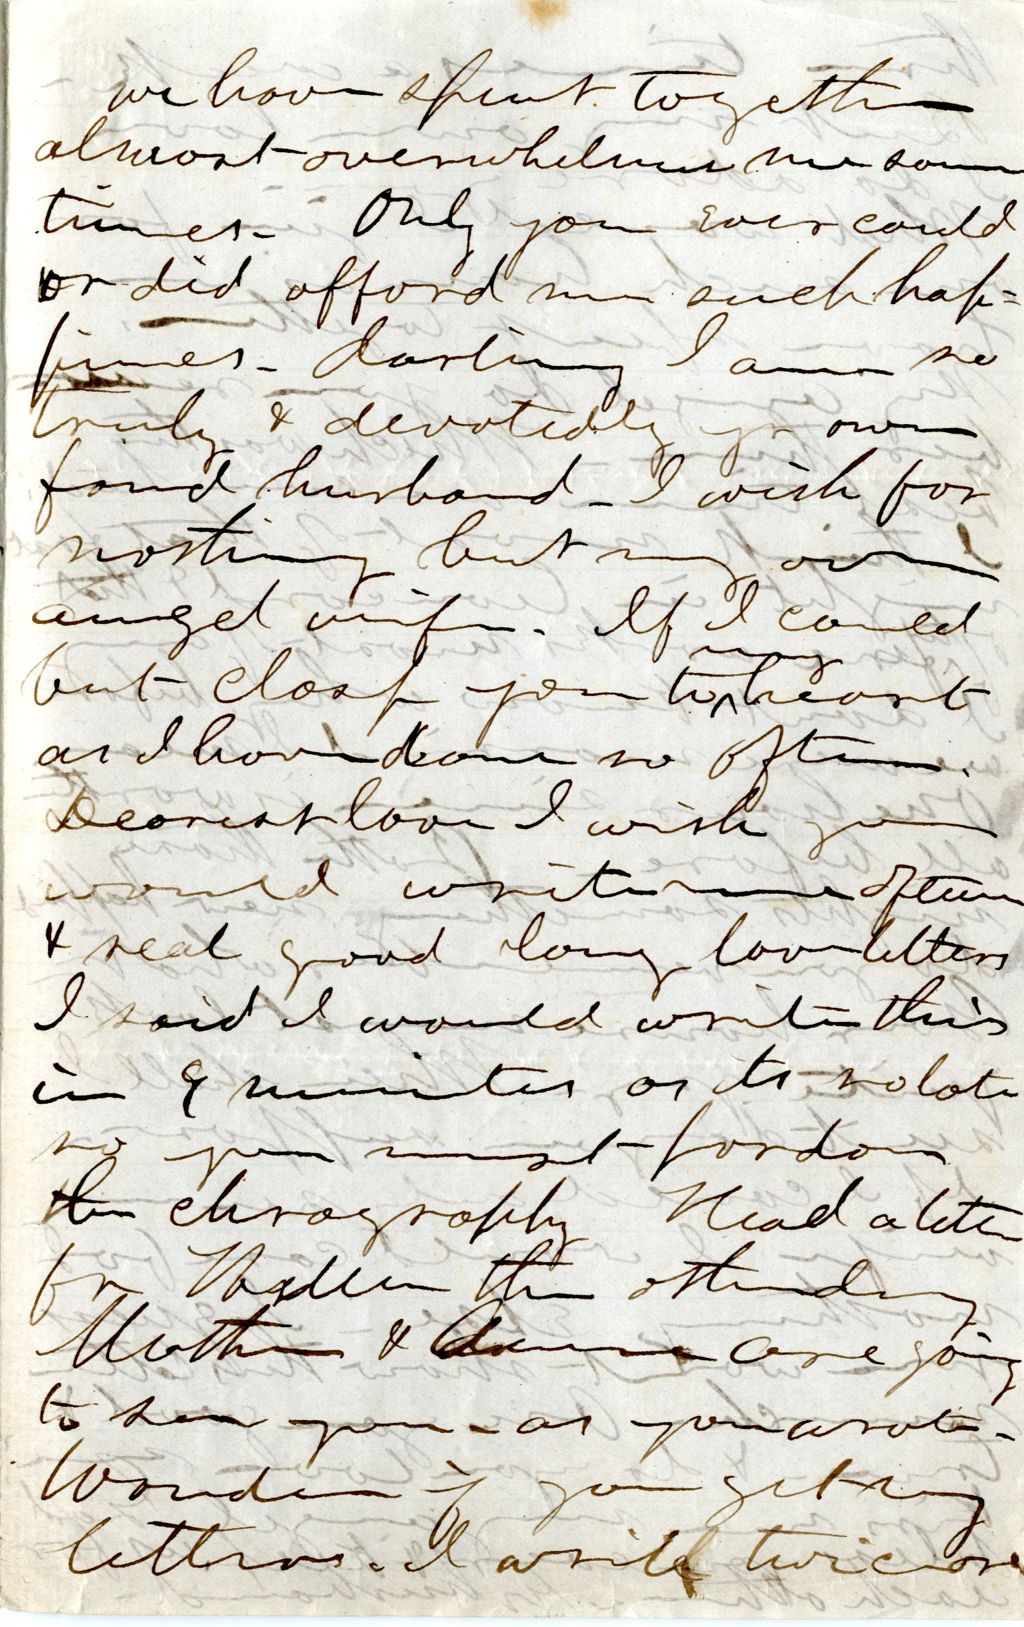 we have spent together
almost overwhelms me some
times - Only you ever could
or did afford me such hap=
piness - darling I am so
truly & devotedly yr own
fond husband - I wish for
nothing but my own
angel wife. If I could
but clasp you to my heart
as I have done so often.
Dearest love I wish you
would write me often
& real good long love letters
I said I would write this
in 9 minutes as its so late
so you must pardon
the chirography Head a letter
fr the other day
Mother & are going
to see you - as you wrote -
Wonder if you get my
letters. I write twice or